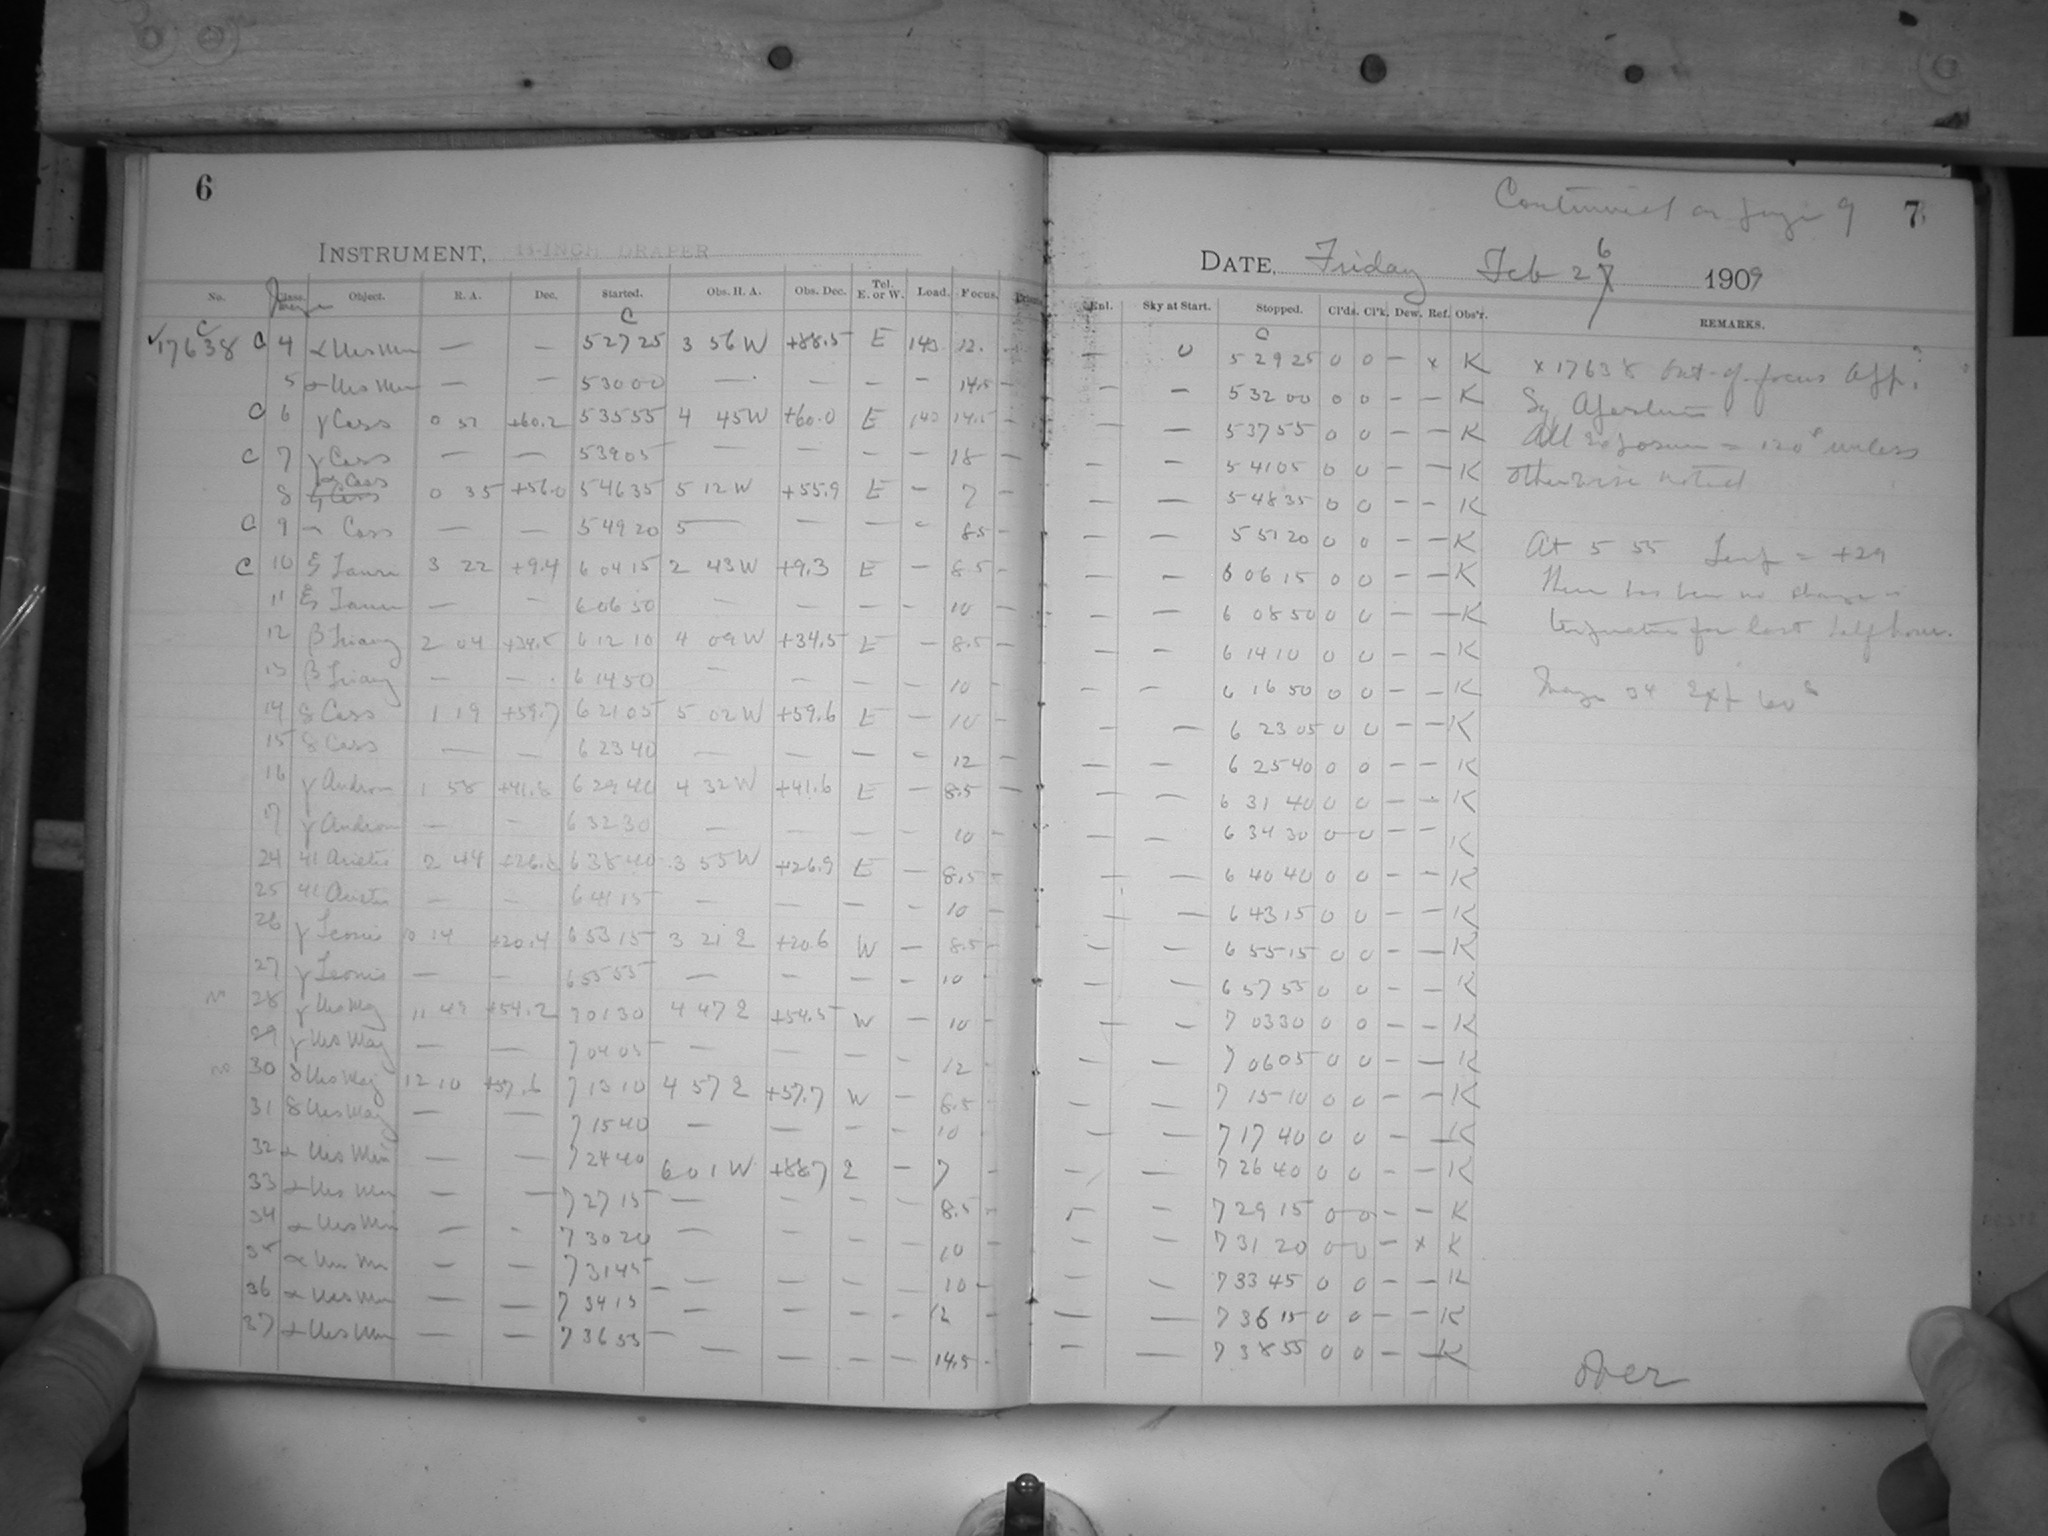 6
INSTRUMENT, 13-INCH DRAPER
No. Class. Object. R. A. Dec. Started. Obs. H. A. Obs. Dec. Tel. E. or W. Load. Focus.
C C
✓17638 C 4 α Urs Min — — 5 27 25 3 56 W +88.5 E 140 12.
5 α Urs Min — — 5 30 00 — — — — 14.5 —
C 6 γ Cass 0 51 +60.2 5 35 55 4 45 W +60.0 E 140 14.5 —
C 7 γ Cass — — 5 39 05 — — — — 18 —
8 α Cass 0 35 +56.0 5 46 35 5 12 W +55.9 E — 7 —
C 9 — Cass — — 5 49 20 5 — — — — 8.5 —
C 10 ξ Tauri 3 22 +9.4 6 04 15 2 43 W +9.3 E — 8.5 —
11 ξ Tauri — — 6 06 50 — — — — 10 —
12 β Triang 2 04 +34.5 6 12 10 4 09 W +34.5 E — 8.5 —
13 β Triang — — 6 14 50 — — — — 10 —
14 δ Cass 1 19 +59.7 6 21 05 5 02 W +59.6 E — 10 —
15 δ Cass — — 6 23 40 — — — — 12 —
16 γ Androm 1 58 +41.8 6 29 40 4 32 W +41.6 E — 8.5 —
17 γ Androm — — 6 32 30 — — — — 10 —
24 41 Arietis 2 44 +26.8 6 38 40 3 55 W +26.9 E — 8.5 —
25 41 Arietis — — 6 41 15 — — — — 10 —
26 γ Leonis 10 14 +20.4 6 53 15 3 21 E +20.6 W — 8.5 —
27 γ Leonis — — 6 55 55 — — — — 10 —
28 γ Urs Maj 11 49 +54.2 7 01 30 4 47 E +54.5 W — 10 —
29 γ Urs Maj — — 7 04 05 — — — — 12 —
30 δ Urs Maj 12 10 +57.6 7 13 10 4 57 E +57.7 W — 8.5 —
31 δ Urs Maj — — 7 15 40 — — — — 10 —
32 α Urs Min — — 7 24 40 6 01 W +88.7 E — 7 —
33 α Urs Min — — 7 27 15 — — — — 8.5 —
34 α Urs Min — — 7 30 20 — — — — 10 —
35 α Urs Min — — 7 31 45 — — — — 10 —
36 α Urs Min — — 7 34 15 — — — — 12 —
37 α Urs Min — — 7 36 55 — — — — 14.5 —
Continued on page 9 7
DATE, Friday Feb 26 1909
Enl. Sky at Start. Stopped. Cl'ds. Cl'k. Dew. Ref. Obs'r. REMARKS.
C
— 0 5 29 25 0 0 — x K x 17638 Out-of-focus App.
— — 5 32 00 0 0 — — K Sq Aperture
— — 5 37 55 0 0 — — K All exposures = 120s unless
— — 5 41 05 0 0 — — K otherwise noted
— — 5 48 35 0 0 — — K
— — 5 51 20 0 0 — — K At 5 55 Temp = +29
— — 6 06 15 0 0 — — K There has been no change in
— — 6 08 50 0 0 — — K temperature for last half hour.
— — 6 14 10 0 0 — — K
— — 6 16 50 0 0 — — K Image 34 Exp 60s
— — 6 23 05 0 0 — — K
— — 6 25 40 0 0 — — K
— — 6 31 40 0 0 — — K
— — 6 34 30 0 0 — — K
— — 6 40 40 0 0 — — K
— — 6 43 15 0 0 — — K
— — 6 55 15 0 0 — — K
— — 6 57 55 0 0 — — K
— — 7 03 30 0 0 — — K
— — 7 06 05 0 0 — — K
— — 7 15 10 0 0 — — K
— — 7 17 40 0 0 — — K
— — 7 26 40 0 0 — — K
— — 7 29 15 0 0 — — K
— — 7 31 20 0 0 — x K
— — 7 33 45 0 0 — — K
— — 7 36 15 0 0 — — K
— — 7 38 55 0 0 — — K
Over